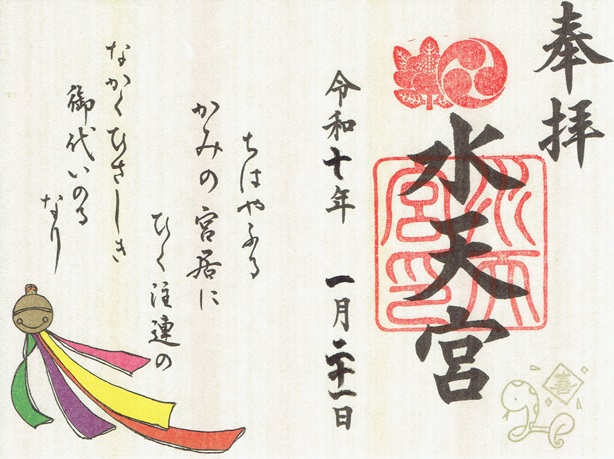 奉拝
水天宮
水天宮印
令和十年 一月二十一日
ちはやふる
かみの宮居に
ひく注連の
なかくひさしき
御代いのる
なり
喜